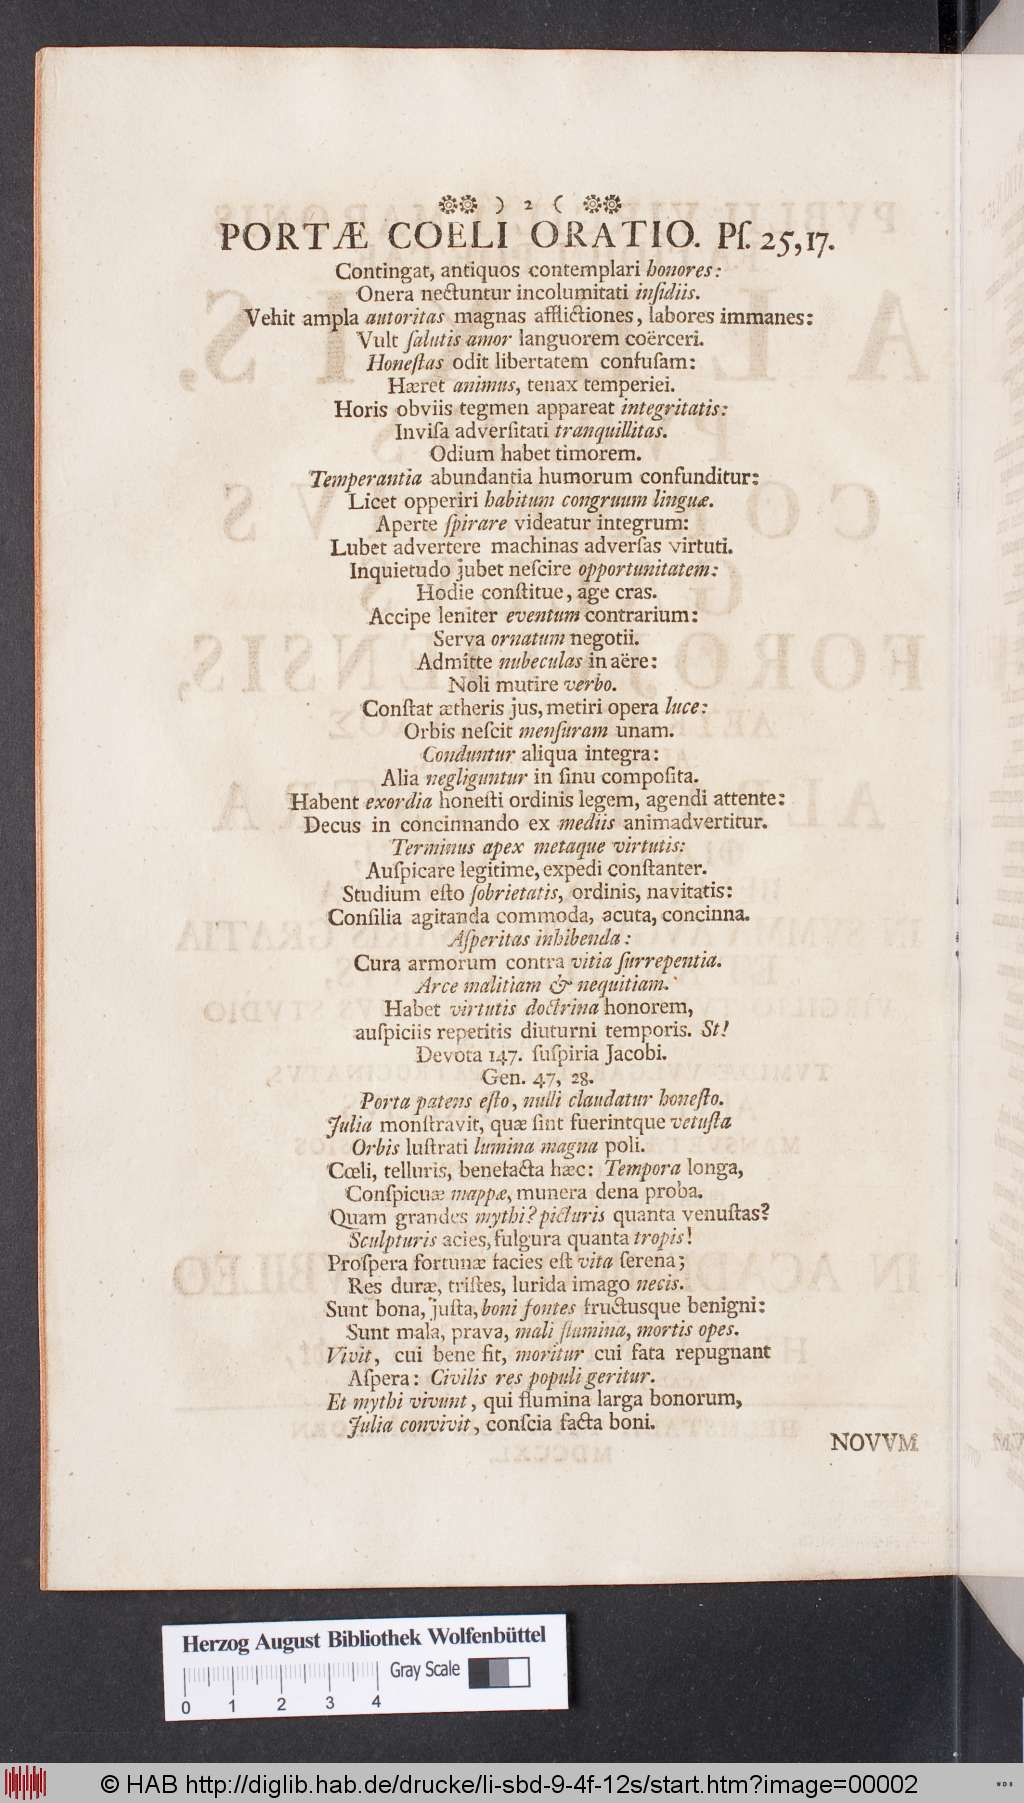 ) 2 (
PORTÆ COELI ORATIO. Pſ. 25,17.
Contingat, antiquos contemplari honores:
Onera nectuntur incolumitati inſidiis.
Vehit ampla autoritas magnas afflictiones, labores immanes:
Vult ſalutis amor languorem coërceri.
Honeſtas odit libertatem confuſam:
Hæret animus, tenax temperiei.
Horis obviis tegmen appareat integritatis:
Inviſa adverſitati tranquillitas.
Odium habet timorem.
Temperantia abundantia humorum confunditur:
Licet opperiri habitum congruum linguæ.
Aperte ſpirare videatur integrum:
Lubet advertere machinas adverſas virtuti.
Inquietudo jubet neſcire opportunitatem:
Hodie conſtitue, age cras.
Accipe leniter eventum contrarium:
Serva ornatum negotii.
Admitte nubeculas in aëre:
Noli mutire verbo.
Conſtat ætheris jus, metiri opera luce:
Orbis neſcit menſuram unam.
Conduntur aliqua integra:
Alia negliguntur in ſinu compoſita.
Habent exordia honeſti ordinis legem, agendi attente:
Decus in concinnando ex mediis animadvertitur.
Terminus apex metaque virtutis:
Auſpicare legitime, expedi conſtanter.
Studium eſto ſobrietatis, ordinis, navitatis:
Conſilia agitanda commoda, acuta, concinna.
Aſperitas inhibenda:
Cura armorum contra vitia ſurrepentia.
Arce malitiam & nequitiam.
Habet virtutis doctrina honorem,
auſpiciis repetitis diuturni temporis. St!
Devota 147. ſuſpiria Jacobi.
Gen. 47, 28.
Porta patens eſto, nulli claudatur honeſto.
Julia monſtravit, quæ ſint fuerintque vetuſta
Orbis luſtrati lumina magna poli.
Cœli, telluris, benefacta hæc: Tempora longa,
Conſpicuæ mappæ, munera dena proba.
Quam grandes mythi? picturis quanta venuſtas?
Sculpturis acies, fulgura quanta tropis!
Proſpera fortunæ facies eſt vita ſerena;
Res duræ, triſtes, lurida imago necis.
Sunt bona, juſta, boni fontes fructusque benigni:
Sunt mala, prava, mali flumina, mortis opes.
Vivit, cui bene fit, moritur cui fata repugnant
Aſpera: Civilis res populi geritur.
Et mythi vivunt, qui flumina larga bonorum,
Julia convivit, conſcia facta boni.
NOVVM
Herzog August Bibliothek Wolfenbüttel
Gray Scale
0 1 2 3 4
© HAB http://diglib.hab.de/drucke/li-sbd-9-4f-12s/start.htm?image=00002